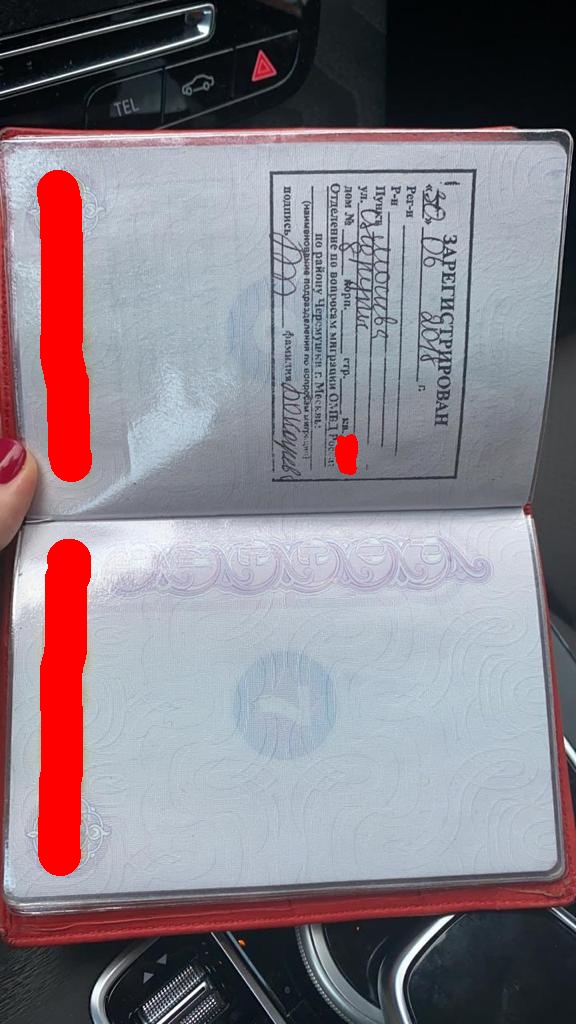 TEL
ЗАРЕГИСТРИРОВАН
«30» 06 2018 г.
Рег-н
Р-н
Пункт г. Москва
ул.
дом № 8 корп. стр. кв.
Отделение по вопросам миграции ОМВД России
по району Черемушки г. Москвы
(наименование подразделения по вопросам миграции)
подпись фамилия
7